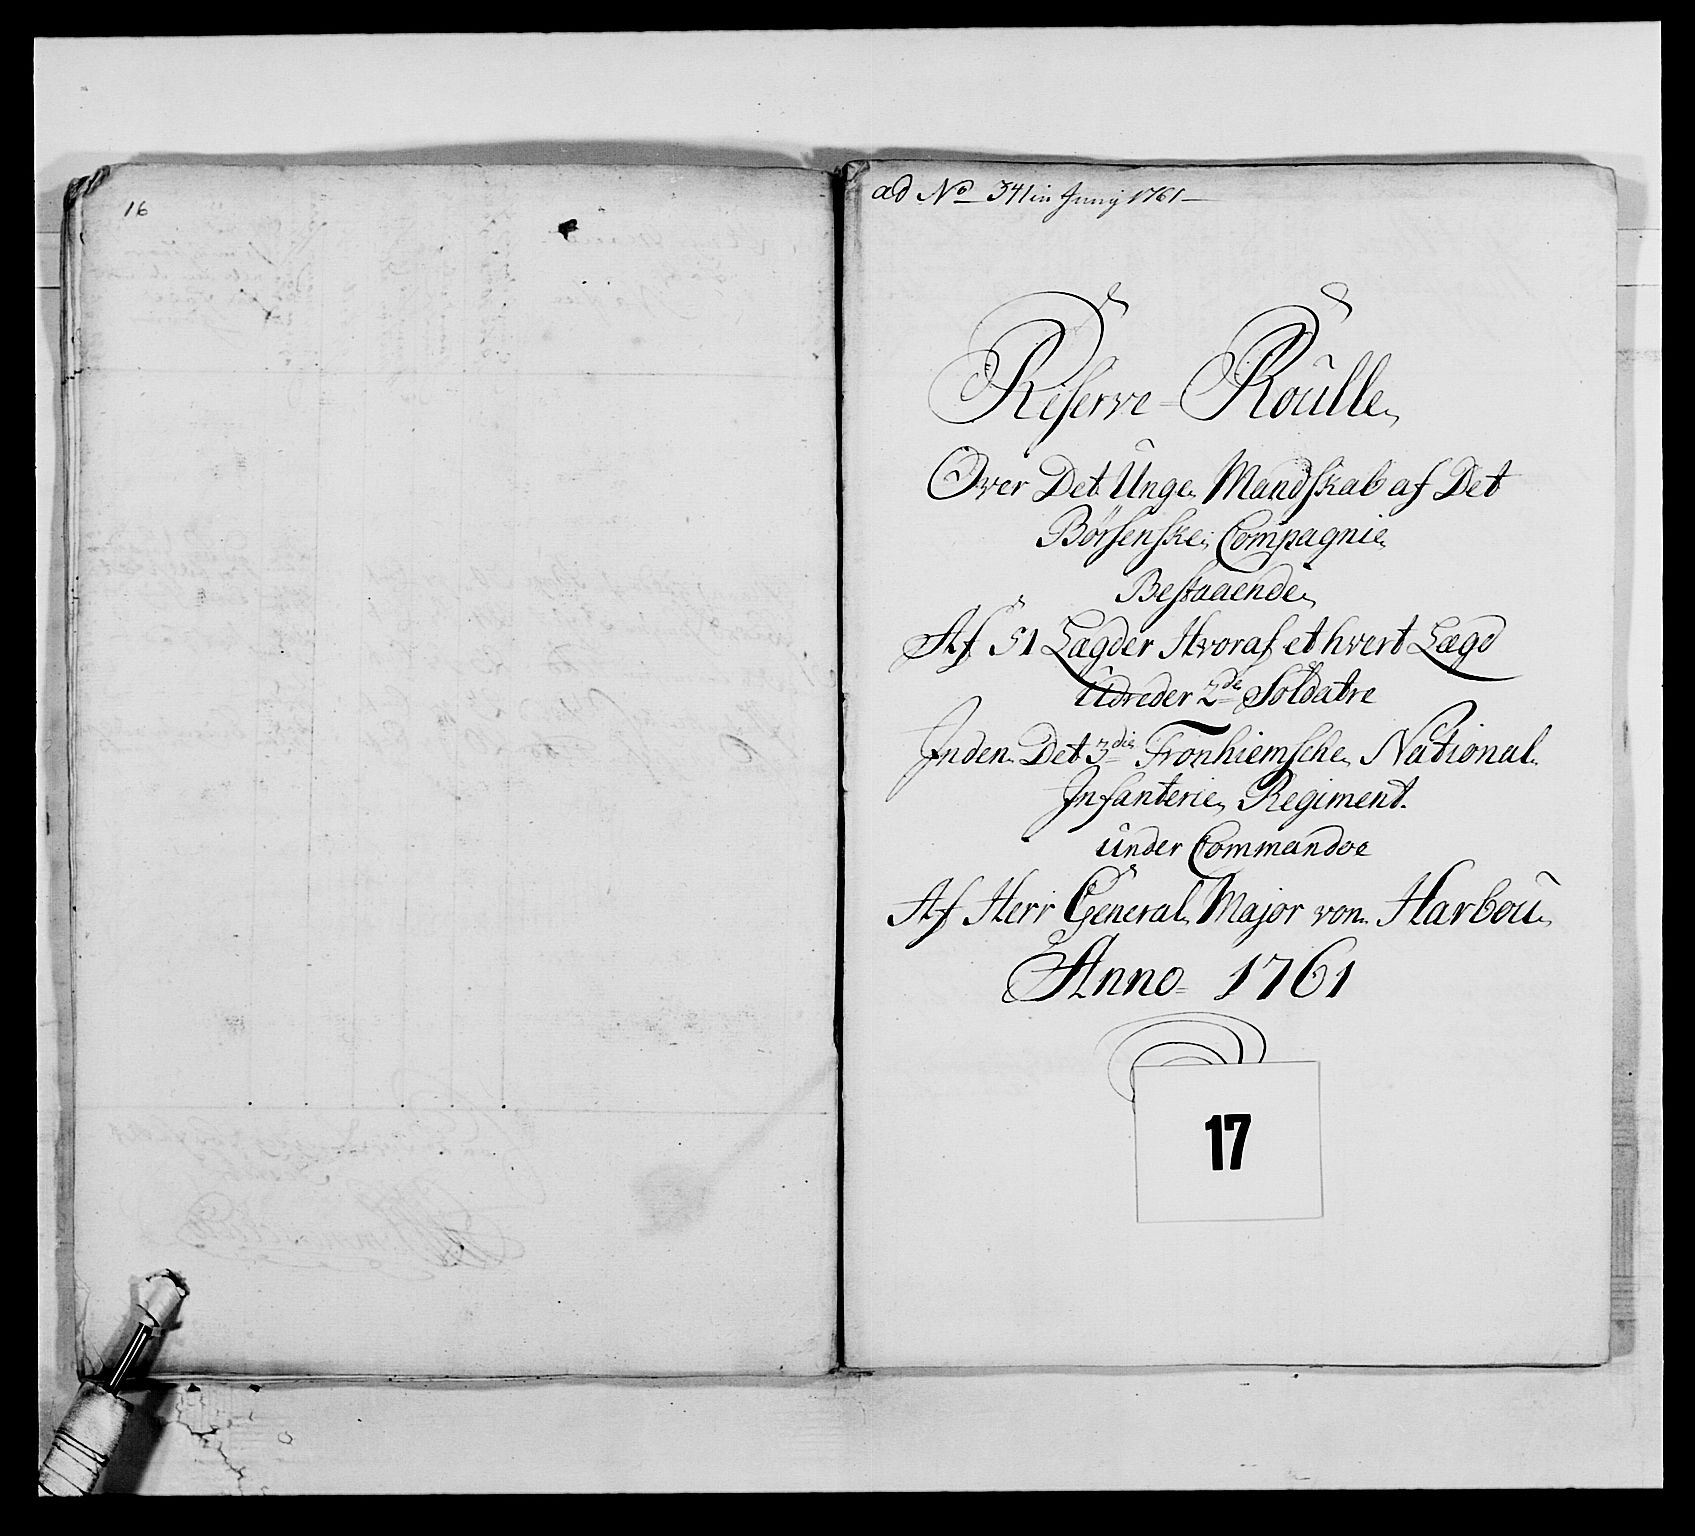 16
ad No 341 in Junij 1761
Reserve-Roulle
Over Det Unge Mandskab af Det
Børsenske Compagnie
Bestaaende
Af 51 Lægder Hvoraf et hvert Lægd
Udreder 2de Soldatre
Inden Det 3die Tronhiemsche National
Infanterie Regiment.
under Commandoe
Af Herr General Major von Harbou
Anno 1761
17